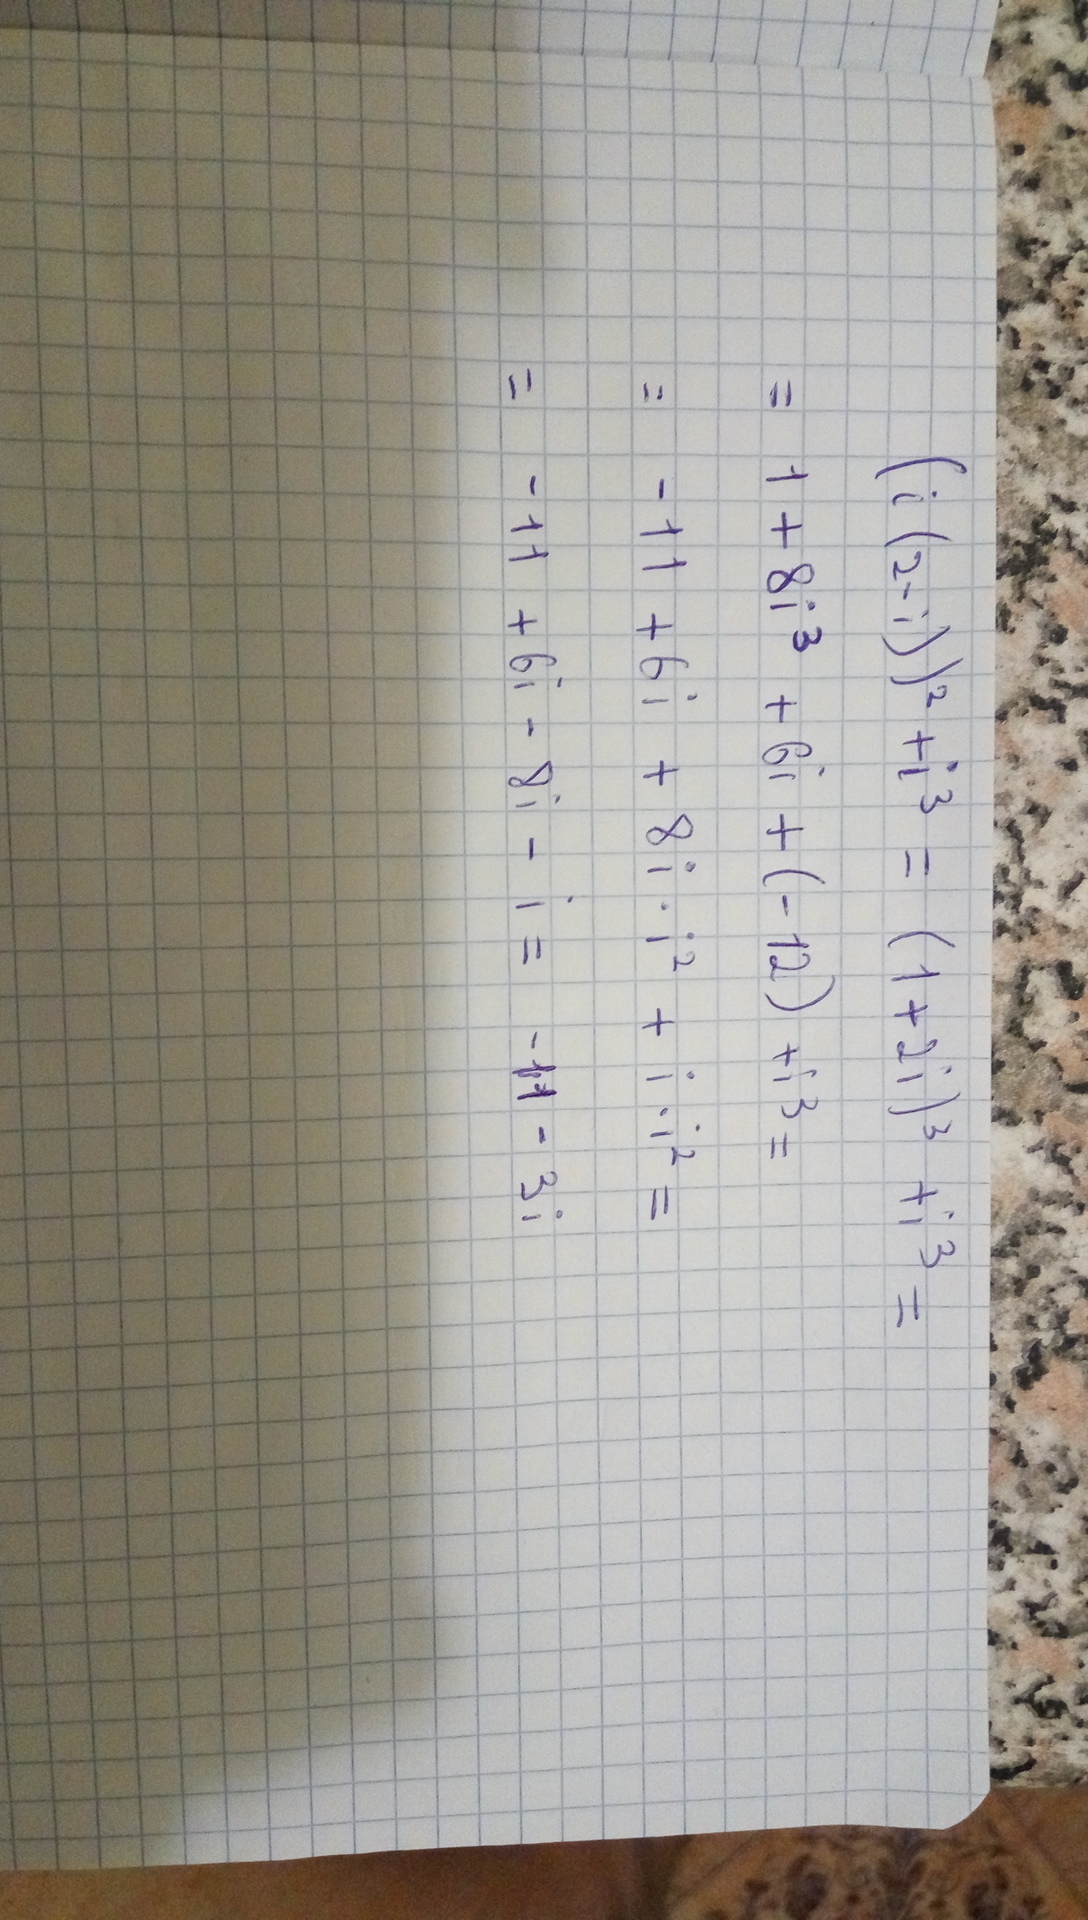 (i(2-i))² + i³ = (1+2i)³ + i³ =
= 1 + 8i³ + 6i + (-12) + i³ =
= -11 + 6i + 8i · i² + i · i² =
= -11 + 6i - 8i - i = -11 - 3i